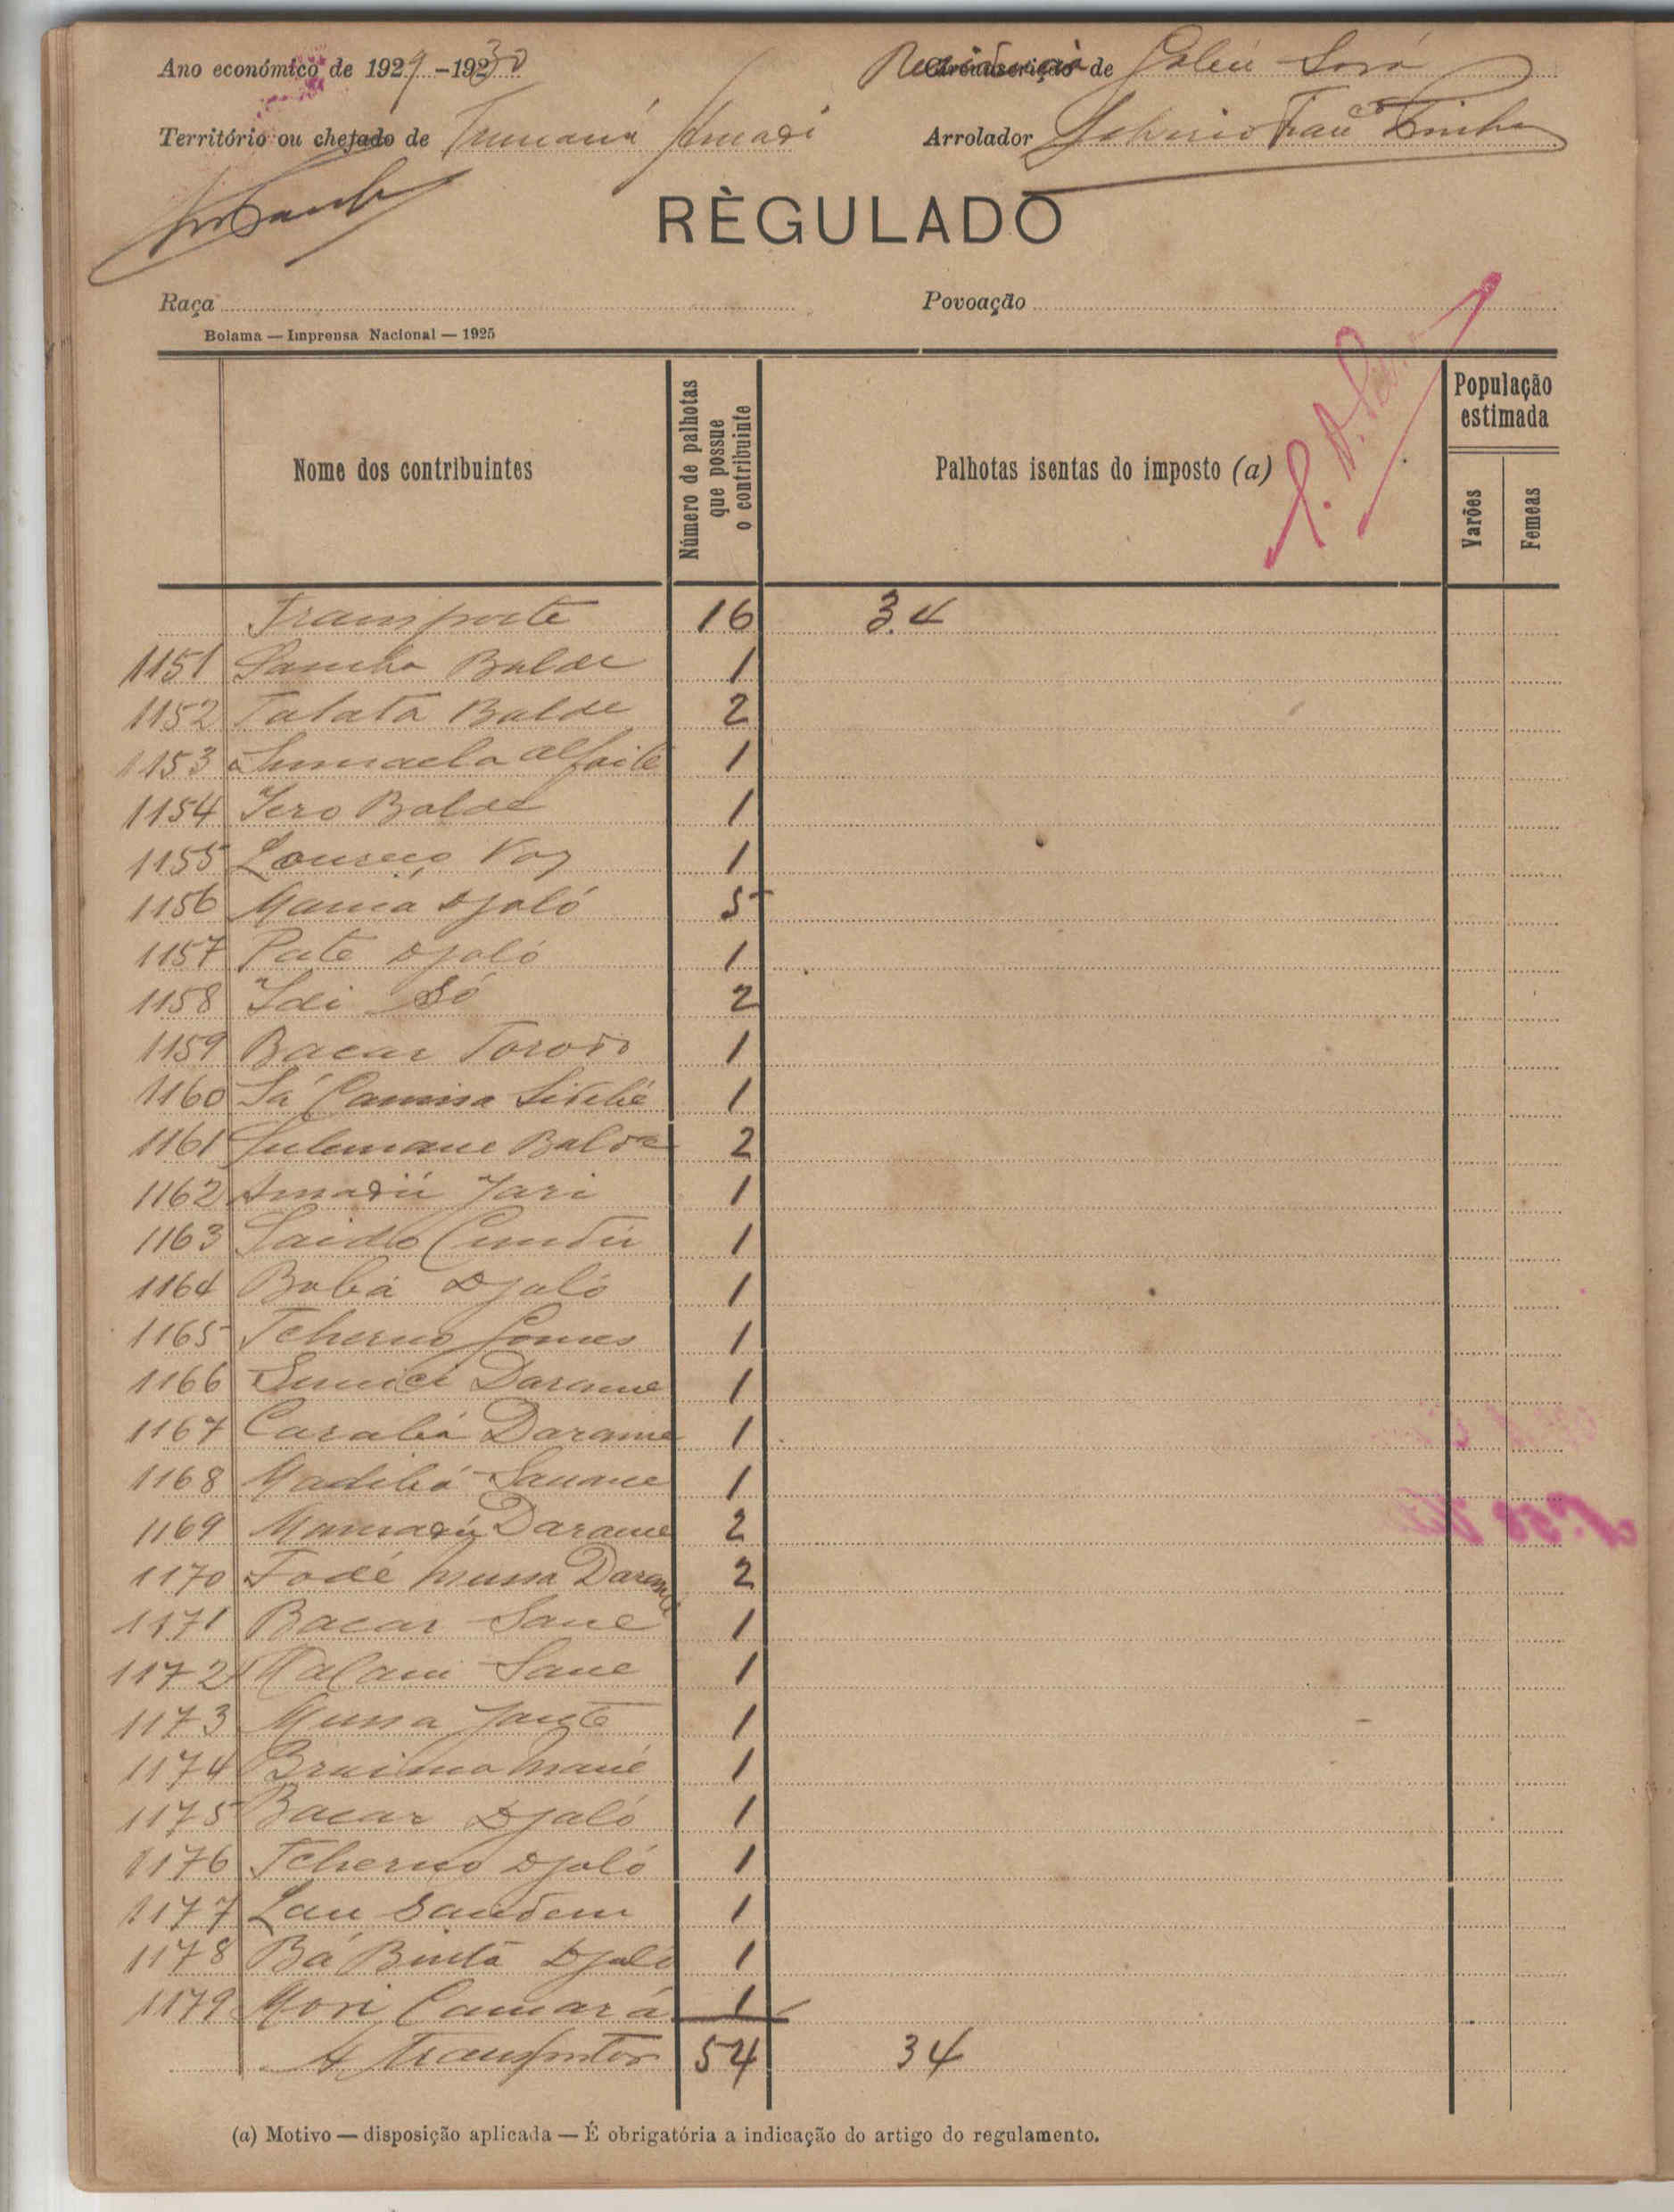 Ano económico de 1929-1930
Residencia de Gabú Sará
Território ou chefado de Tumaná
Arrolador
RÈGULADO
Raça
Povoação
Bolama — Imprensa Nacional — 1925
Nome dos contribuintes
Número de palhotas que possue o contribuinte
Palhotas isentas do imposto (a)
População estimada
Varões
Femeas
Transporte 16 34
1151 Samba Balde 1
1152 Tatata Balde 2
1153 Sumaela alfaite 1
1154 Iero Balde 1
1155 Lourenço Vaz 1
1156 Mamá Djaló 5
1157 Pate Djaló 1
1158 Idi Só 2
1159 Bacar Torodo 1
1160 Sá Camisa Sidibé 1
1161 Sulemane Balde 2
1162 Amadú Jari 1
1163 Saido Cundú 1
1164 Bobá Djaló 1
1165 Tcherno Gomes 1
1166 Darame 1
1167 Carabá Darame 1
1168 Madibá Sauane 1
1169 Mamadú Darame 2
1170 Fodé Mussa Darame 2
1171 Bacar Sane 1
1172 Malam Sane 1
1173 Mussa 1
1174 Braima Mané 1
1175 Bacar Djaló 1
1176 Tcherno Djaló 1
1177 Lau 1
1178 Bá Bintá Djaló 1
1179 Mori Camará 1
A Transportar 54 34
(a) Motivo — disposição aplicada — É obrigatória a indicação do artigo do regulamento.